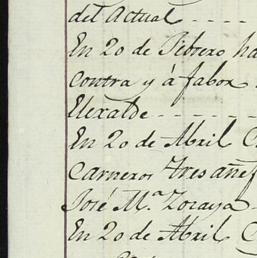 del Actual - - - -
En 20 de Febrero ha
contra y á fabor
Elexalde - - - - -
En 20 de Abril C
Carneros tres añej
José M.ª Zoraya -
En 20 de Abril C